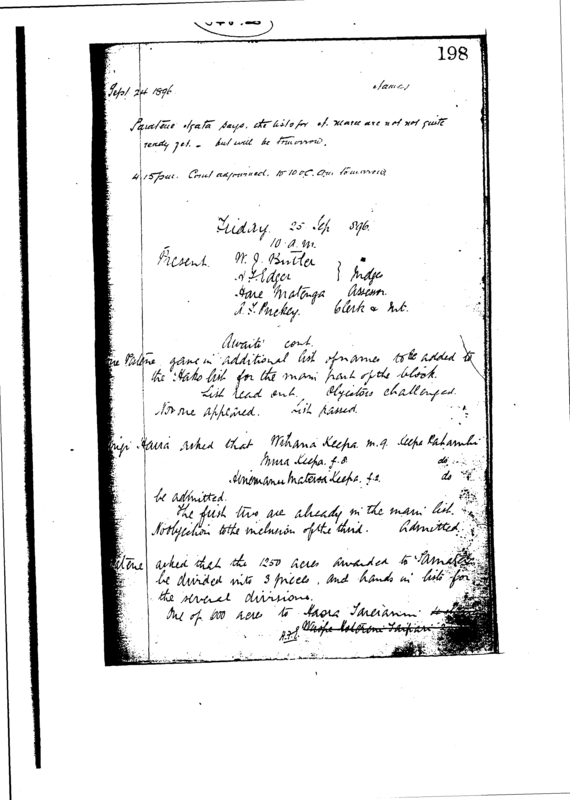 198
Sept 24 1896
says, the lists for are not quite
ready yet. - but will be tomorrow.
4.15 pm. Court adjourned. to 10 o.c. am tomorrow
Friday 25 Sep 896
10 a.m.
Present. W. J. Butler
Edger } Judges
Hare Matenga Assessor
Puckey. Clerk & Int.
Awaiti cont.
Patene gave in additional list of names to be added to
the Hako list for the main part of the block.
List read out. Objectors challenged.
None appeared. List passed.
asked that Wihana Keepa m. 9. Keepa
Keepa. f. 8 do
Keepa. f. 2 do
be admitted.
The first two are already in the main list
No objection to the inclusion of the third. Admitted
asked that the 1250 acres awarded to
be divided into 3 pieces, and hands in lists for
the several divisions.
One of 600 acres to